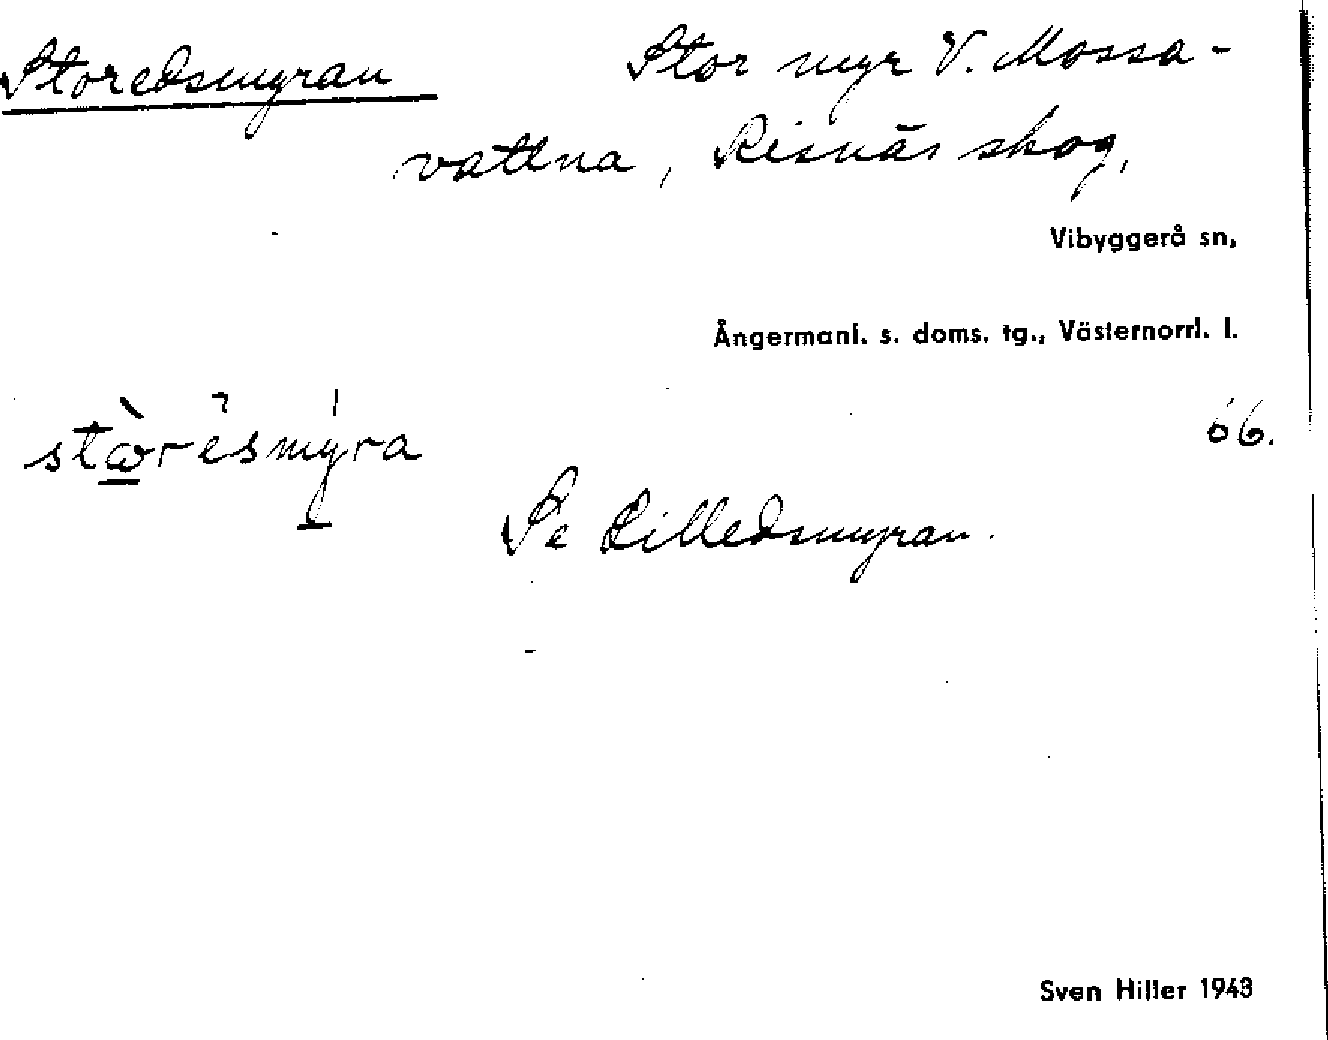 Storedsmyran Stor myr V. Mossa-
vattna, Risnäs skog,
Vibyggerå sn,
Ångermanl. s. doms. tg., Västernorrl. l.
66.
Se Lilledsmyran.
Sven Hiller 1943